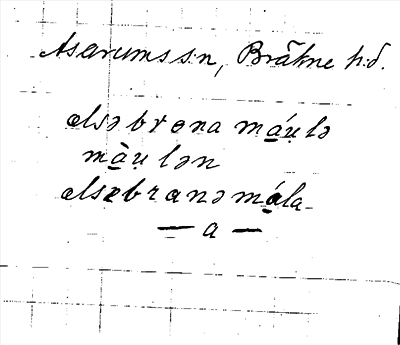 Asarums sn, Bräkne h:d.
ælsəbrɵna má̱u̯lə
mà̱u̯lən
ælsɐbranə má̱la
— a —